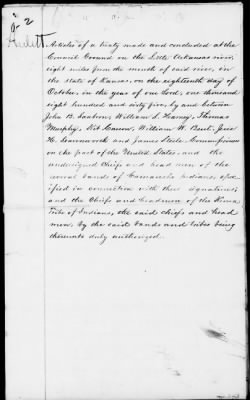 2
Articles of a treaty made and concluded at the
Council Ground on the Little Arkansas river
eight miles from the mouth of said river, in
the state of Kansas, on the eighteenth day of
October, in the year of our Lord, one thousand
eight hundred and sixty five, by and between
John B. Sanborn, William S. Harney, Thomas
Murphy, Kit Carson, William W. Bent, Jesse
H. Leavenworth and James Steele, Commissioners
on the part of the United States and the
undersigned Chiefs and head men of the
several bands of Camanche Indians, spec
ified in connection with their signatures,
and the Chiefs and headmen of the Kiowa
Tribe of Indians, the said chiefs and head
men by the said bands and tribes being
thereunto duly authorized.